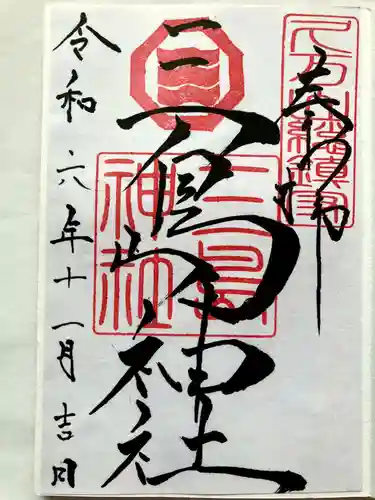 奉拝
三島神社
三島神社
令和六年十一月吉日